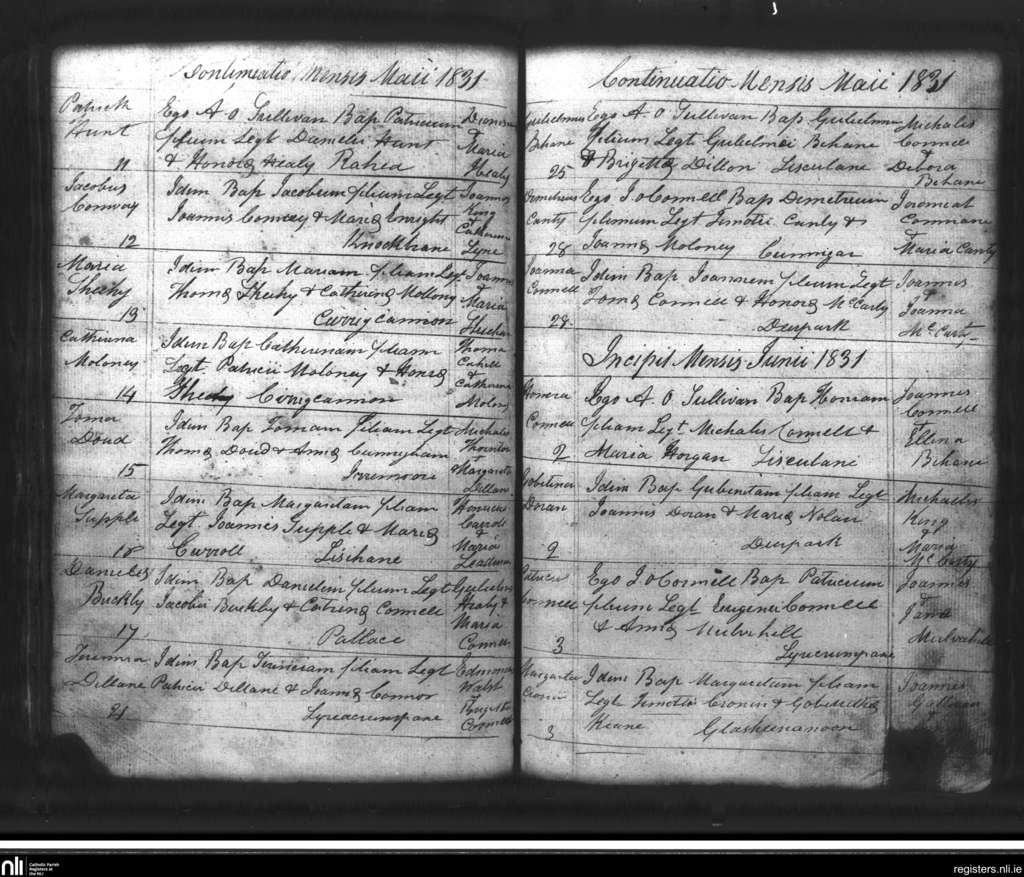 Continuatio Mensis Maii 1831
Patrick Hunt 11
Ego A O Sullivan Bap Patricium
filium Legt Danielis Hunt
& Honora Healy Rahea
Dionisius
&
Maria
Healy
Jacobus Conway 12
Idem Bap Jacobum filium Legt
Joannis Conway & Maria Enright
Knockbrane
Joannes
King
&
Catherina
Lyne
Maria Sheehy 13
Idem Bap Mariam filiam Legt
Thoma Sheehy & Catherina Molony
Currigcannon
Joannes
&
Maria
Catherina Moloney 14
Idem Bap Catherinam filiam
Legt Patricii Moloney & Honora
Shedy Corrigcannon
Thoma
Cahill
&
Catherina
Molony
Toma Doud 15
Idem Bap Tomam filium Legt
Thoma Doud & Ama Cunnigham
Irremoore
Michalis
Thornton
& Margareta
Dillon
Margareta Supple 18
Idem Bap Margaretam filiam
Legt Joannes Supple & Maria
Carroll Lischane
Carroll
&
Maria
Danieles Buckly 17
Idem Bap Danielem filium Legt
Jacobii Buckley & Catrina Connell
Pallace
Gulielmus
Healy &
Maria
Connell
Dillane 21
Idem Bap filiam Legt
Patricii Dillane & Joanna Connor
Lyreacrumpane
Edmond
Walsh
&
Brigetta
Connell
Continuatio Mensis Maii 1831
Gulielmus Behane 25
Ego A O Sullivan Bap Gulielmum
filium Legt Gulielmei Behane
& Brigetta Dillon Lisculane
Michalis
Connell
&
Debora
Behane
Demetrius Canty 28
Ego J o Connell Bap Demetrium
filium Legt Timotii Canty &
Joanna Moloney Cunnigar
Jeremiah
Connane
&
Maria Canty
Joanna Connell 28
Idem Bap Joannem filium Legt
Toma Connell & Honora McCarty
Deerpark
Joannes
&
Joanna
McCarty
Incipit Mensis Junii 1831
Honora Connell 2
Ego A O Sullivan Bap Honoram
filiam Legt Michalis Connell &
Maria Horgan Lisculane
Joannes
Connell
&
Ellina
Behane
Gobelina Doran 2
Idem Bap Gubinitam filiam Legt
Joannis Doran & Maria Nolan
Deerpark
Michalis
King
&
Maria
McCarty
Patricii Connell 3
Ego J o Connell Bap Patricium
filium Legt Eugenii Connell
& Ama Mulvihill
Lyrecrumpane
Joannes
&
Jana
Mulvihill
Margareta Cronin 3
Idem Bap Margaretam filiam
Legt Timotii Cronin & Gobinetta
Keane Glashienanoon
Joannes
nli
Catholic Parish
Registers at
the NLI
registers.nli.ie